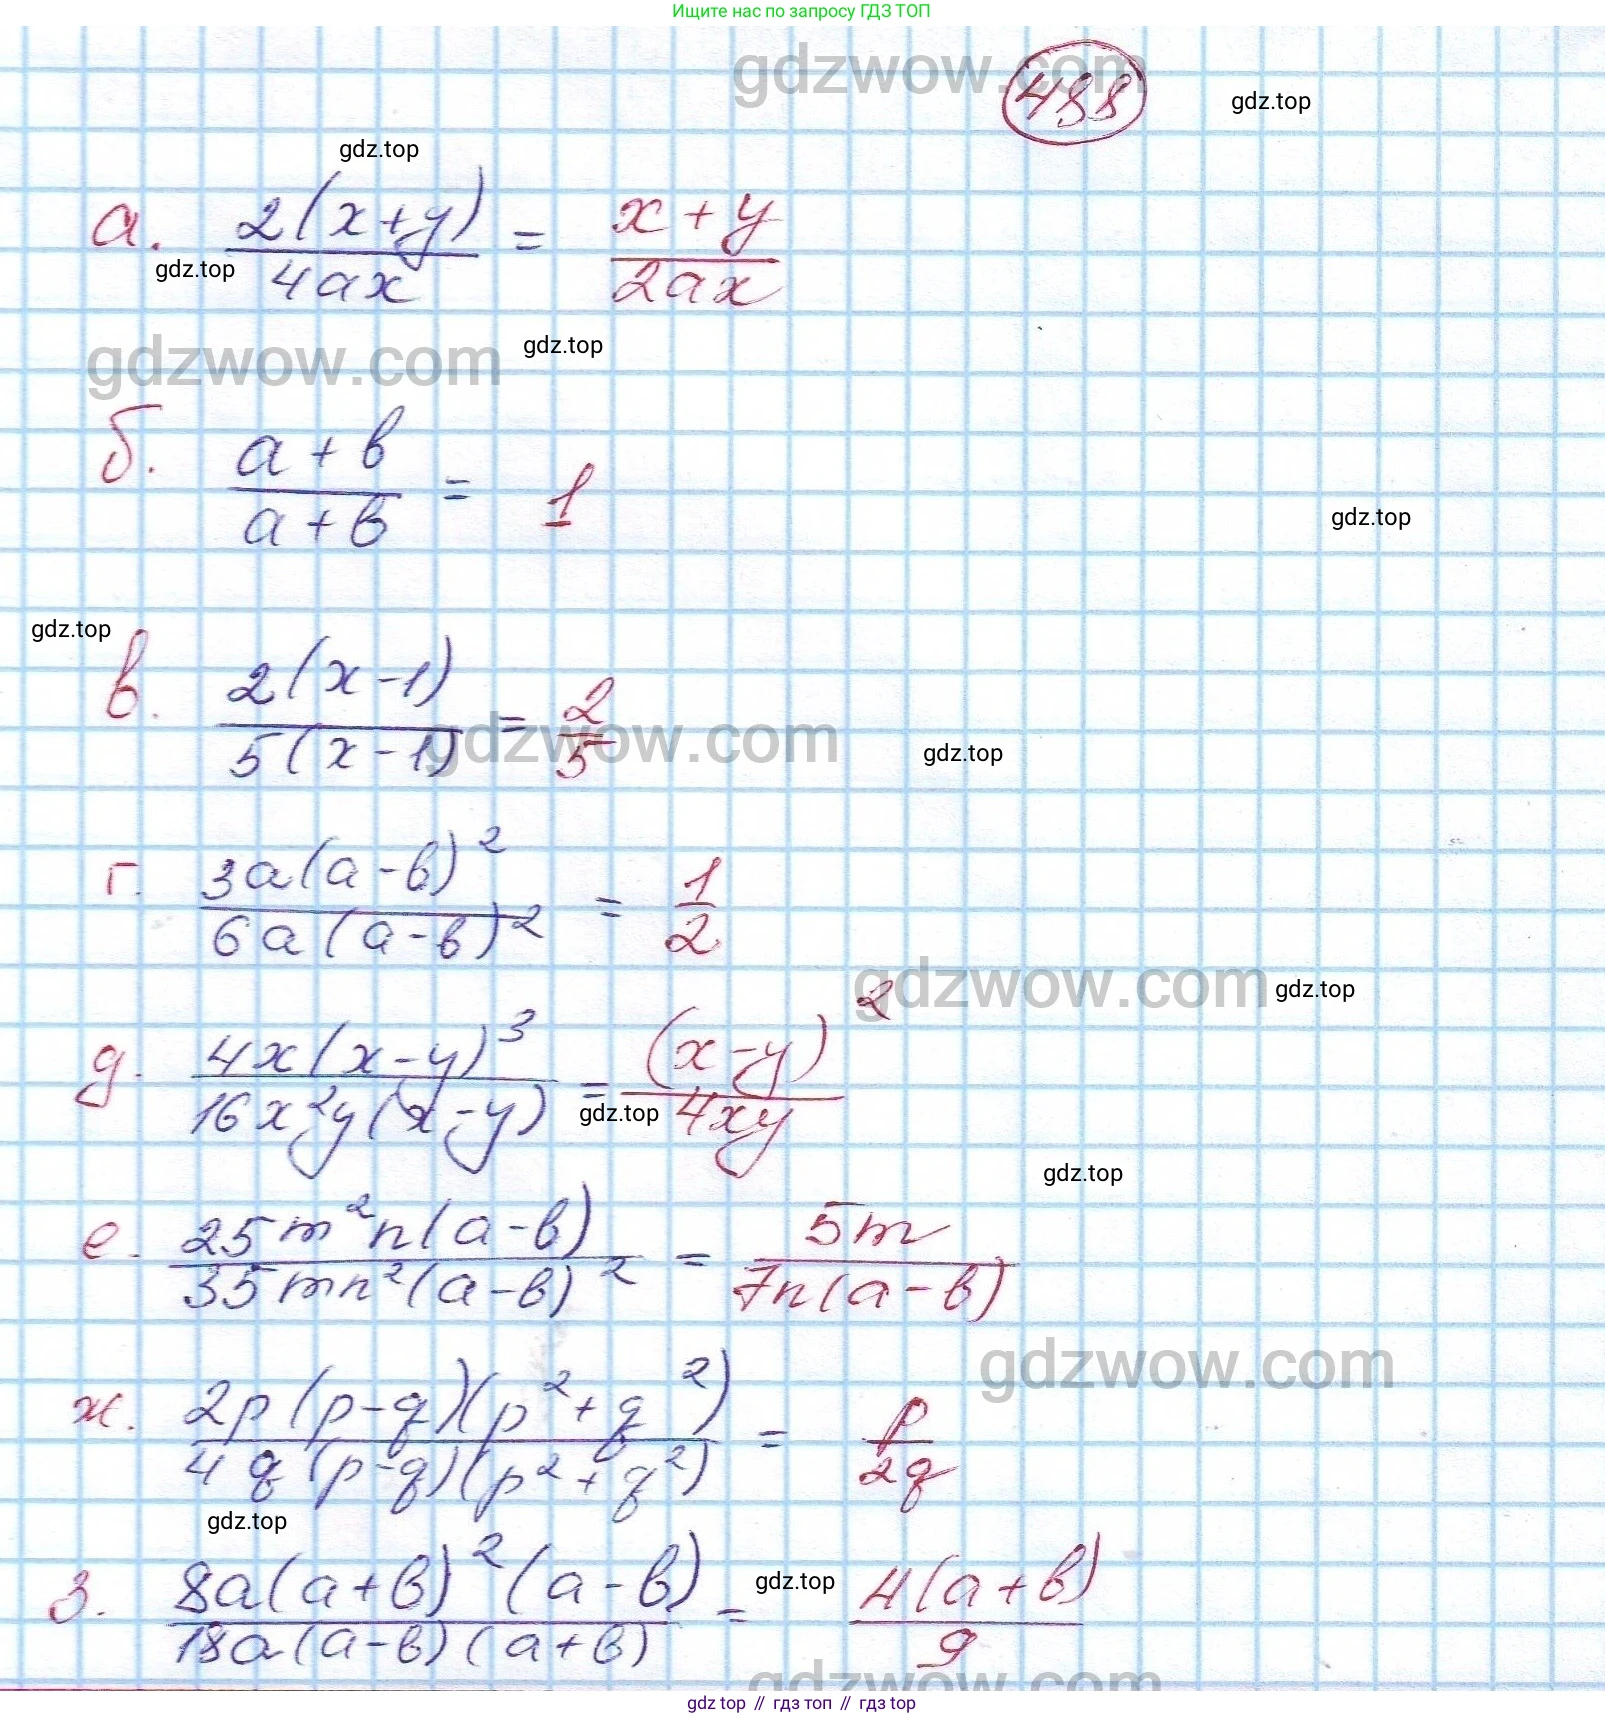 Ищите нас по запросу ГДЗ ТОП
gdzwow.com
488
gdz.top
gdz.top
а. 2(x+y)/4ax = x+y/2ax
gdz.top
gdzwow.com
gdz.top
б. a+b/a+b = 1
gdz.top
gdz.top
в. 2(x-1)/5(x-1) = 2/5
gdzwow.com
gdz.top
г. 3a(a-b)²/6a(a-b)² = 1/2
gdzwow.com
gdz.top
д. 4x(x-y)³/16x²y(x-y) = (x-y)²/4xy
gdz.top
gdz.top
е. 25m²n(a-b)/35mn²(a-b)² = 5m/7n(a-b)
gdzwow.com
ж. 2p(p-q)(p²+q²)/4q(p-q)(p²+q²) = p/2q
gdz.top
з. 8a(a+b)²(a-b)/18a(a-b)(a+b) = 4(a+b)/9
gdz.top
gdzwow.com
gdz top // гдз топ // gdz top